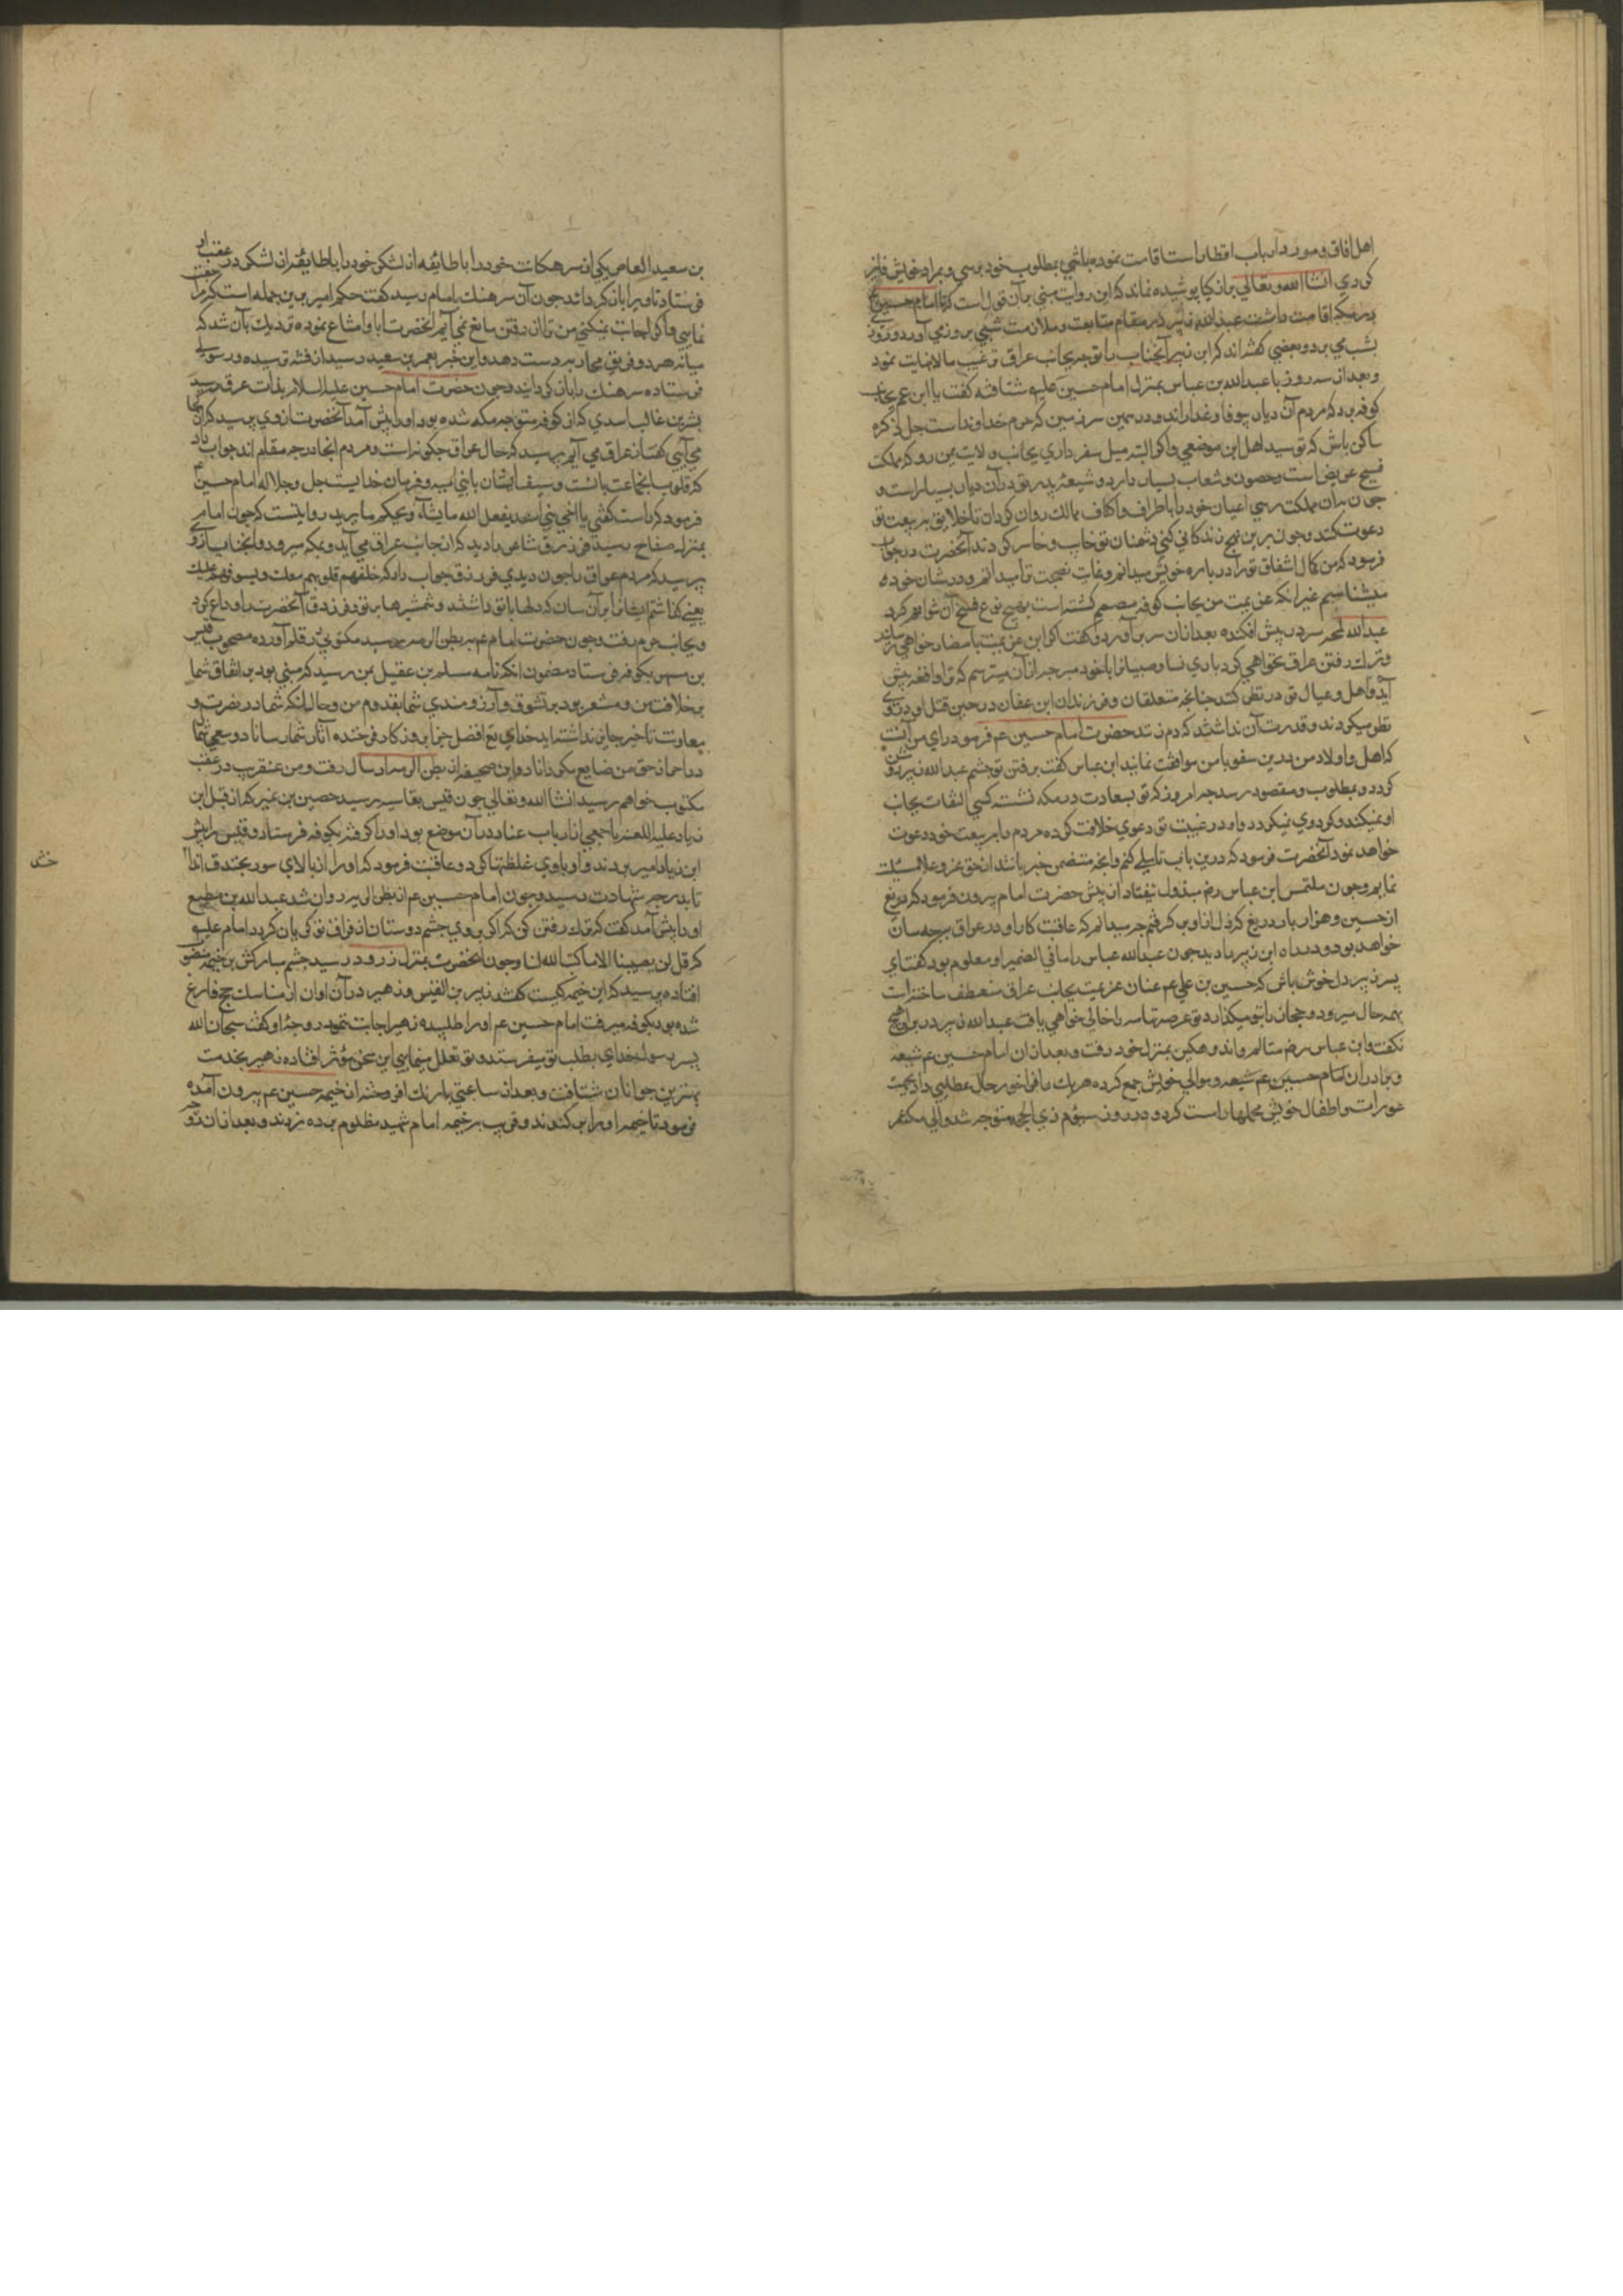 اهل افاق و مورد ارباب اقطار است اقامت نموده باشی بمطلوب خود برسی و بمراد خویش فایز
کردی انشاالله وتعالی برانکیا پوشیده نماند که این روایت مبنی بر آن قول است که تا امام حسین ع
در مکه اقامت داشت عبدالله زبیر در مقام متابعت و ملازمت شبی بروز می آورد و روزی
بشب می برد و بعضی گفته اند که ابن زبیر آنجناب را بتوجه بجانب عراق ترغیب مالانهایت نمود
و بعد از سه روز با عبدالله بن عباس بمنزل امام حسین علیه شتافته گفت یا ابن عم بجانب
کوفه مرو که مردم آن دیار بیوفا و غدارند و در همین سرزمین که حرم خداوند است جل ذکره
ساکن باش که تو سید اهل این موضعی و اکر البته میل سفر داری بجانب ولایت یمن رو که مملکت
فسیح عریض است و حصون و شعاب بسیار دارد و شیعه پدر تو در آن دیار بسیار است و
چون بدان مملکت رسی اعیان خود را باطراف و اکناف ممالک روان کردان تا خلایق به بیعت تو
دعوت کنند و چون برین نهج زندکانی کنی دشمنان تو خایب و خاسر کردند آنحضرت در جواب
فرمود که من کمال اشفاق ترا درباره خویش میدانم و غایت نصیحت ترا میدانم و در شان خود
میشناسم غیر انکه عزیمت من بجانب کوفه مصمم کشته است بهیچ نوع فسخ آن نتوانم کرد
عبدالله لمحه سر در پیش افکنده بعد از آن سر برآورد و گفت اکر این عزیمت بامضا خواهی رساند
و ترک رفتن عراق نخواهی کرد باری نسا و صبیانرا با خود مبر چه از آن میترسم که ترا واقعه پیش
آید و اهل و عیال تو در تو نظر کنند چنانچه متعلقان و فرزندان ابن عفان در حین قتل او در وی
نظر میکردند و قدرت آن نداشتند که دم زنند حضرت امام حسین عم فرمود رای من آنست
که اهل و اولاد من درین سفر با من موافقت نمایند ابن عباس گفت برفتن تو چشم عبدالله زبیر روشن
کردد و بمطلوب و مقصود رسد چه امروز که تو بسعادت در مکه نشسته کسی التفات بجانب
او نمیکند و کرد وی نمیکردد و او در غیبت تو دعوی خلافت کرده مردم را به بیعت خود دعوت
خواهد نمود آنحضرت فرمود که درین باب تاملی کنم و انچه متضمن خیر باشد از حق عز و علا مسئلت
نمایم و چون ملتمس ابن عباس رضی مبذول نیفتاد از پیش حضرت امام بیرون فرمود که دریغ
از حسین و هزار بار دریغ که دل از او بر کرفتم چه میدانم که عاقبت کار او در عراق بر چه سان
خواهد بود و در راه ابن زبیر را دید چون عبدالله عباس را ما فی الضمیر او معلوم بود گفت ای
پسر زبیر دل خوش باش که حسین بن علی عم عنان عزیمت بجانب عراق منعطف ساخته است
بهمه حال میرود و حجاز را بتو میکذارد تو عرصه تهامه را خالی خواهی یافت عبدالله زبیر درین باب هیچ
نکفت و ابن عباس رضی متالم و اندوهکین بمنزل خود رفت و بعد از آن امام حسین عم شیعه
و برادران امام حسین عم شیعه و موالی خویش جمع کرده هر یک را فراخور حال عطیتی داد بجهت
عورات و اطفال خویش محملها راست کرد و در روز سیوم ذی الحجه متوجه شد والی مکه عمر
بن سعید العاص یکی از سرهنکان خود را با طایفه از لشکر خود در عقب او
فرستاد تا ویرا باز کردانند چون آن سرهنک بامام رسید گفت حکم امیر برین جمله است که مراجعت
نمایی و اکر اجابت نمیکنی من ترا از رفتن مانع می آیم آنحضرت ابا و امتناع نموده نزدیک بآن شد که
میانه هر دو فریق محاربه دست دهد و این خبر بعمر بن سعید رسید از فتنه ترسیده رسولی
فرستاده سرهنک را باز کردانید و چون حضرت امام حسین علیه السلام بذات عرق رسید
بشر بن غالب اسدی که از کوفه متوجه مکه شده بود او را پیش آمد آنحضرت از وی پرسید که از کجا
می آیی گفت از عراق می آیم پرسید که حال عراق چکونه است و مردم انجا در چه مقام اند جواب داد
که قلوب انجماعت با تست و سیف ایشان با بنی امیه و فرمان خدایست جل و جلاله امام حسین ع
فرمود که راست کفتی یا اخی بنی اسد یفعل الله ما یشاء و یحکم ما یرید روایتست که چون امام
بمنزله صفاح رسید فرزدق شاعر را دید که از جانب عراق می آید و بمکه میرود و انجناب از وی
پرسید که مردم عراق را چون دیدی فرزدق جواب داد که خلفهم قلوبهم معک و سیوفهم علیک
یعنی کذاشتم ایشانرا بر آن سان که دلها با تو داشتند و شمشیرها بر تو و فرزدق آنحضرت را وداع کرد
و بجانب حرم رفت و چون حضرت امام عم ببطن الرمه رسید مکتوبی در قلم آورده مصحوب قیس
بن مسهر بکوفه فرستاد مضمون انکه نامه مسلم بن عقیل بمن رسید که مبنی بود بر اتفاق شما
بر خلافت من و مشعر بود بر تشوق و آرزومندی شما بقدوم من و حال انکه شما در نصرت و
معاونت تاخیر جایز نداشته اید خدای تع افضل جزا بروزکار فرخنده آثار شما رساناد و سعی شما
در احراز حق من ضایع مکرداناد و این صحیفه از بطن الرمه ارسال رفت و من عنقریب در عقب
مکتوب خواهم رسید انشاالله وتعالی چون قیس بقادسیه رسید حصین بن نمیر که از قبل ابن
زیاد علیه اللعنه با جمعی از ارباب عناد در آن موضع بود او را کرفته بکوفه فرستاد و قیس را پیش
ابن زیاد امیر بردند و او با وی غلظتها کرد و عاقبت فرمود که او را از بالای سور بخندق انداختند
تا بدرجه شهادت رسید و چون امام حسین عم از بطن الرمه روان شد عبدالله بن مطیع
او را پیش آمد گفت که ترک رفتن کن که اکر بروی چشم دوستان از فراق تو کریان کردد امام علیه
که قل لن یصیبنا الا ما کتب الله لنا و چون آنحضرت بمنزل زرود رسید چشم مبارکش بر خیمه
افتاده پرسید که این خیمه کیست گفتند زهیر بن القین و زهیر در آن اوان از مناسک حج فارغ
شده بود بکوفه میرفت امام حسین عم او را طلبیده زهیر اجابت ننمود زوجه او گفت سبحان الله
پسر رسول خدای بطلب تو میفرستد و تو تعلل مینمایی این سخن مؤثر افتاده زهیر بخدمت
بهترین جوانان شتافت و بعد از ساعتی با رنک افروخته از خیمه حسین عم بیرون آمده
فرمود تا خیمه او را بر کندند و قریب بر خیمه امام شهید مظلوم برده زدند و بعد از آن
ختند